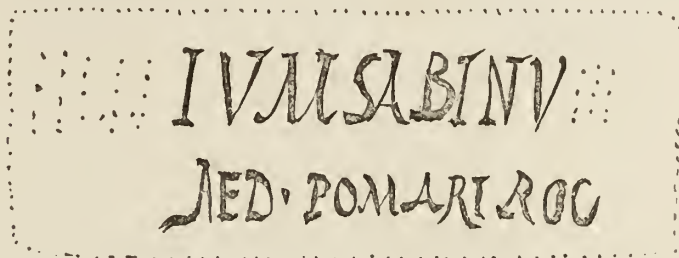 IVMSABINV
AED· POMARI ROG